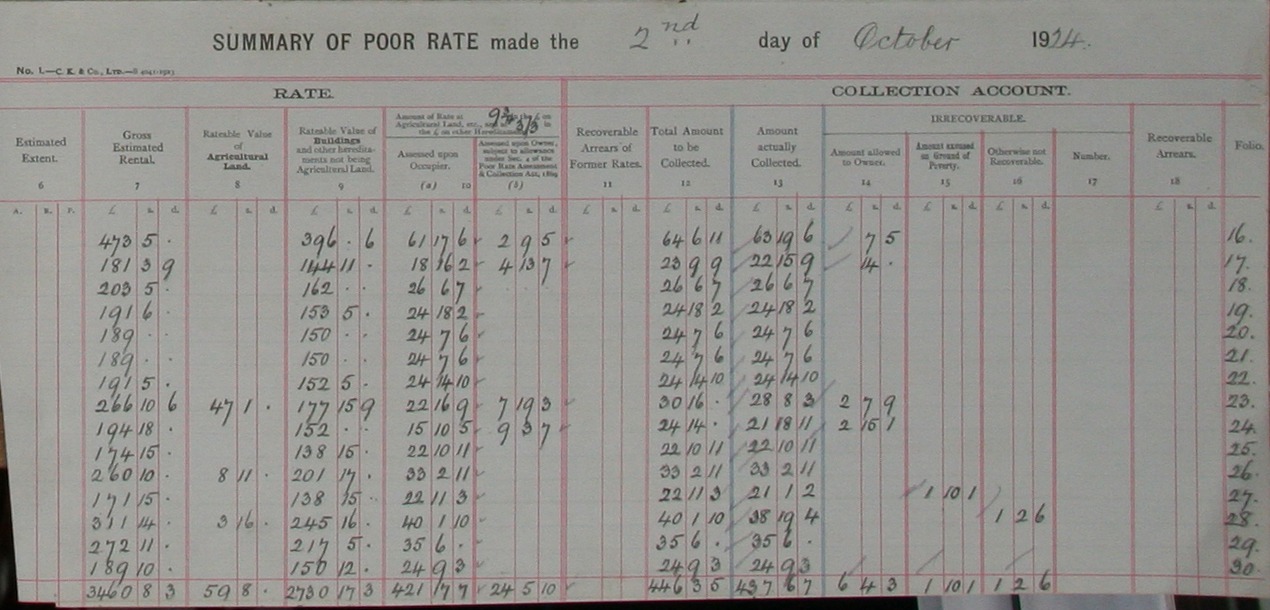 SUMMARY OF POOR RATE made the 2nd day of October 1924.
No. 1.—C. K. & Co., LTD.—
RATE. COLLECTION ACCOUNT.
Estimated Extent. 6
Gross Estimated Rental. 7
Rateable Value of Agricultural Land. 8
Rateable Value of Buildings and other hereditaments not being Agricultural Land. 9
Amount of Rate at 9¾ in the £ on Agricultural Land, etc., and at 3/3 in the £ on other Hereditaments
Assessed upon Occupier. (a) 10
Assessed upon Owner, subject to allowance under Sec. 4 of the Poor Rate Assessment & Collection Act, 1869 (b)
Recoverable Arrears of Former Rates. 11
Total Amount to be Collected. 12
Amount actually Collected. 13
IRRECOVERABLE.
Amount allowed to Owner. 14
Amount excused on Ground of Poverty. 15
Otherwise not Recoverable. 16
Number. 17
Recoverable Arrears. 18
Folio.
A. R. P. £ s. d. £ s. d. £ s. d. £ s. d. £ s. d. £ s. d. £ s. d. £ s. d. £ s. d. £ s. d. £ s. d. £ s. d.
473 5 . 396 . 6 61 17 6 2 9 5 64 6 11 63 19 6 7 5 16.
181 3 9 144 11 . 18 16 2 4 13 7 23 9 9 22 15 9 14 . 17.
203 5 . 162 . . 26 6 7 26 6 7 26 6 7 18.
191 6 . 153 5 . 24 18 2 24 18 2 24 18 2 19.
189 . . 150 . . 24 7 6 24 7 6 24 7 6 20.
189 . . 150 . . 24 7 6 24 7 6 24 7 6 21.
191 5 . 152 5 . 24 14 10 24 14 10 24 14 10 22.
266 10 6 47 1 . 177 15 9 22 16 9 7 19 3 30 16 . 28 8 3 2 7 9 23.
194 18 . 152 . . 15 10 5 9 3 7 24 14 . 21 18 11 2 15 1 24.
174 15 . 138 15 . 22 10 11 22 10 11 22 10 11 25.
260 10 . 8 11 . 201 17 . 33 2 11 33 2 11 33 2 11 26.
171 15 . 138 15 . 22 11 3 22 11 3 21 1 2 1 10 1 27.
311 14 . 3 16 . 245 16 . 40 1 10 40 1 10 38 19 4 1 2 6 28.
272 11 . 217 5 . 35 6 . 35 6 . 35 6 . 29.
189 10 . 150 12 . 24 9 3 24 9 3 24 9 3 30.
3460 8 3 59 8 . 2730 17 3 421 17 7 24 5 10 446 3 5 437 6 7 6 4 3 1 10 1 1 2 6